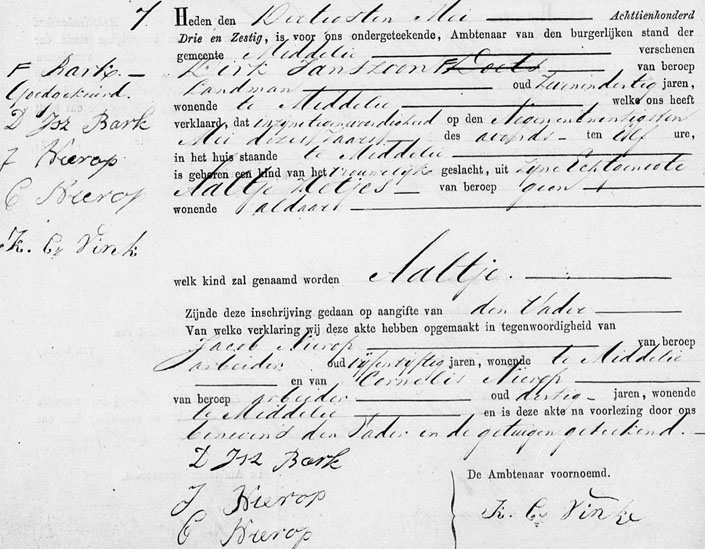 7
Heden den Dertigsten Mei Achttienhonderd
Drie en Zestig, is voor ons ondergeteekende, Ambtenaar van den burgerlijken stand der
gemeente Middelie verschenen
Dirk Janszoon van beroep
Landman oud jaren,
wonende te Middelie welke ons heeft
verklaard, dat in zijne tegenwoordigheid op den Negenentwintigsten
Mei dezes Jaars des avonds ten Elf ure,
in het huis staande te Middelie
is geboren een kind van het vrouwelijk geslacht, uit zijne Echtgenoote
Aaltje van beroep geen
wonende aldaar
Bark
Goedgekeurd.
D Jsz Bark
J Nierop
C Nierop
K. Cz Vink
welk kind zal genaamd worden Aaltje.
Zijnde deze inschrijving gedaan op aangifte van den Vader
Van welke verklaring wij deze akte hebben opgemaakt in tegenwoordigheid van
Jacob Nierop van beroep
arbeider oud vijfenvijftig jaren, wonende te Middelie
en van Cornelis Nierop
van beroep arbeider oud dertig jaren, wonende
te Middelie en is deze akte na voorlezing door ons
benevens den Vader en de getuigen geteekend.
D Jsz Bark
J Nierop
C Nierop
De Ambtenaar voornoemd.